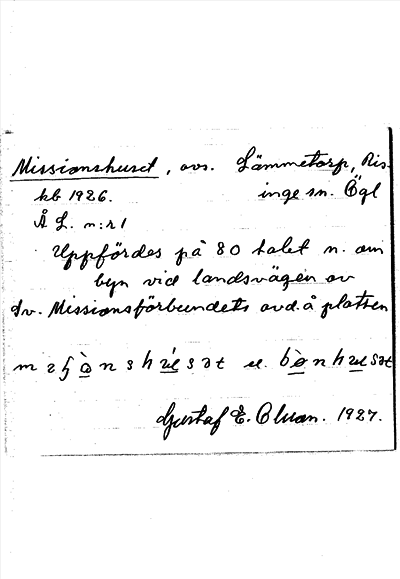 Missionshuset, avs. Lämmetorp, Ris-
hb 1926. inge sn. Ögl
Å L. n:r 1
Uppfördes på 80 talet n. om
byn vid landsvägen av
Sv. Missionsförbundets avd. å platsen
el.
Gustaf E. Olsson. 1927.